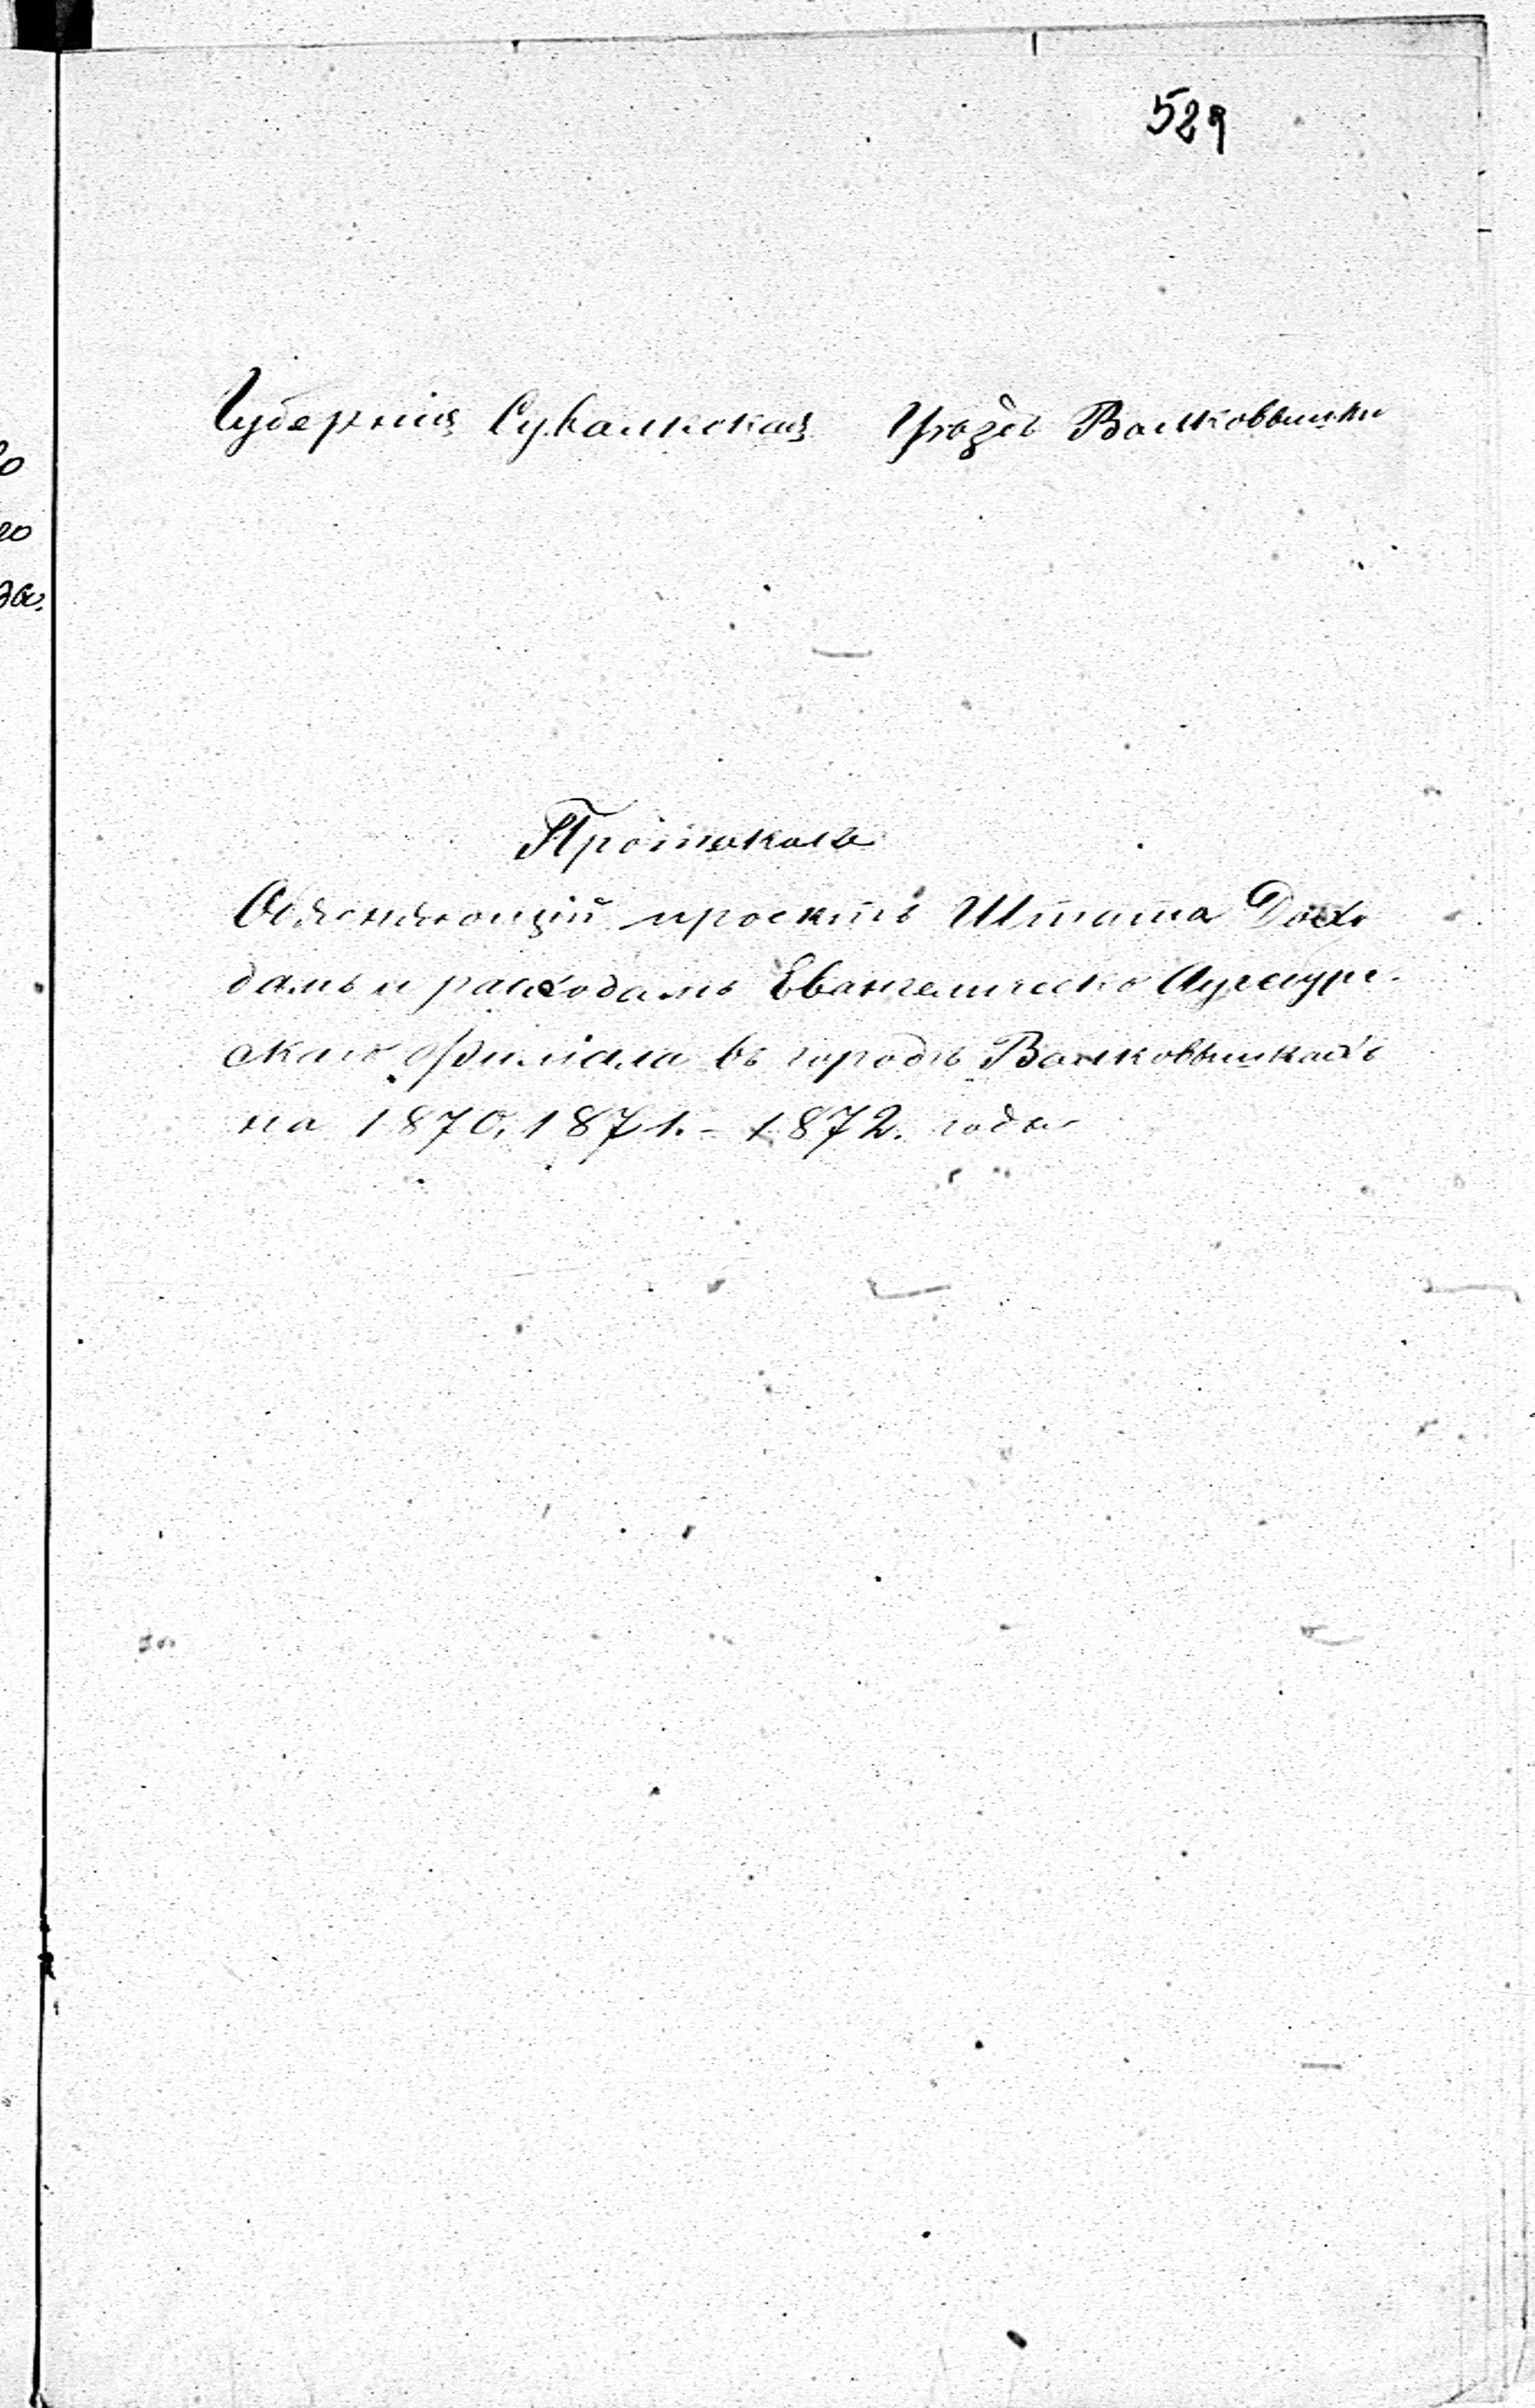 529
Губернія Сувалкская Уѣздъ Волковышки
Протоколъ
Объясняющій проектъ Штата Дохо
дамъ и расходамъ Евангелическо Аугсбург-
скаго филіала въ городѣ Волковышкахъ
на 1870, 1871. – 1872. годы